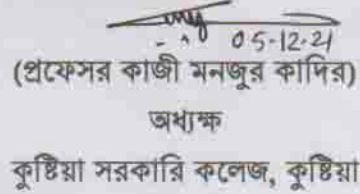 05-12-21
(প্রফেসর কাজী মনজুর কাদির)
অধ্যক্ষ
কুষ্টিয়া সরকারি কলেজ, কুষ্টিয়া